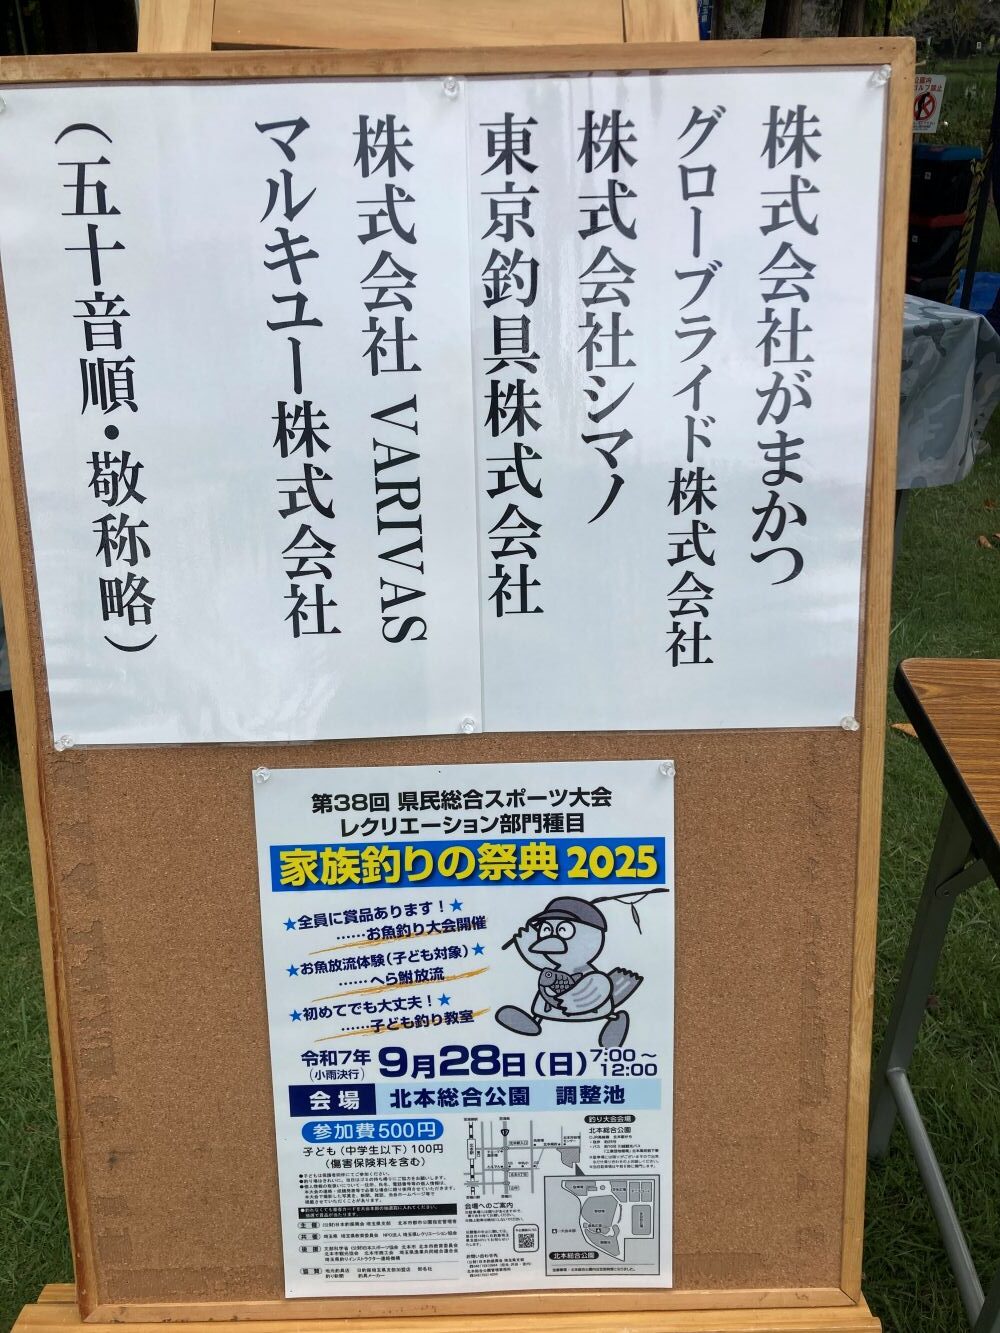 株式会社がまかつ
グローブライド株式会社
株式会社シマノ
東京釣具株式会社
株式会社 VARIVAS
マルキユー株式会社
（五十音順・敬称略）
第38回 県民総合スポーツ大会
レクリエーション部門種目
家族釣りの祭典 2025
★全員に賞品あります！★
……お魚釣り大会開催
★お魚放流体験(子ども対象)★
……へら鮒放流
★初めてでも大丈夫！★
……子ども釣り教室
令和7年
(小雨決行)
9月28日(日)
7:00～
12:00
会場 北本総合公園 調整池
参加費500円
子ども(中学生以下)100円
(傷害保険料を含む)
釣り大会会場
北本総合公園
会場へのご案内
主催
共催
後援
協賛
北本総合公園